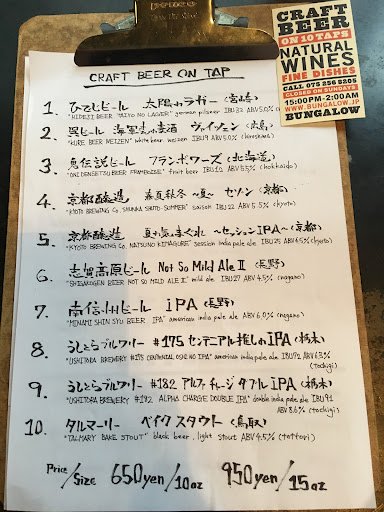 CRAFT BEER ON TAP
1. ひでじビール 太陽のラガー (宮崎)
"HIDEJI BEER TAIYO NO LAGER" german pilsner IBU ABV 5.0%
2. 呉ビール 海軍さんの麦酒 ヴァイツェン (広島)
"KURE BEER WEIZEN" white beer. weizen IBU12 ABV 5.0% (hiroshima)
3. 鬼伝説ビール フランボワーズ (北海道)
"ONIDENSETSU BEER FRAMBOISE" fruit beer IBU12 ABV 5.5% (hokkaido)
4. 京都醸造 春夏秋冬 ~夏~ セゾン (京都)
"KYOTO BREWING CO. SHUNKA SHUTO-SUMMER" saison IBU22 ABV 5.5% (kyoto)
5. 京都醸造 夏の気まぐれ ~セッションIPA~ (京都)
"KYOTO BREWING CO. NATSUNO KIMAGURE" session india pale ale IBU25 ABV 4.5% (kyoto)
6. 志賀高原ビール Not So Mild Ale II (長野)
"SHIGAKOGEN BEER NOT SO MILD ALE II" mild ale IBU27 ABV 4.5% (nagano)
7. 南信州ビール iPA (長野)
"MINAMI SHIN SYU BEER IPA" american india pale ale ABV 6.0% (nagano)
8. うしとらブルワリー #175 センテニアル推しのiPA (栃木)
"USHITORA BREWERY #175 CENTENNIAL OSHI NO IPA" american india pale ale IBU72 ABV 6.3% (tochigi)
9. うしとらブルワリー #182 アルファチャージダブルIPA (栃木)
"USHITORA BREWERY #182 ALPHA CHARGE DOUBLE IPA" double india pale ale IBU91 ABV 8.6% (tochigi)
10. タルマーリー ベイクスタウト (鳥取)
"TALMARY BAKE STOUT" black beer. light stout ABV 4.5% (tottori)
Price/Size 650yen/10oz 950yen/15oz
CRAFT
BEER
ON 10 TAPS
NATURAL
WINES
FINE DISHES
CALL 075 256 8205
CLOSED ON SUNDAYS
15:00PM-2:00AM
WWW.BUNGALOW.JP
BUNGALOW